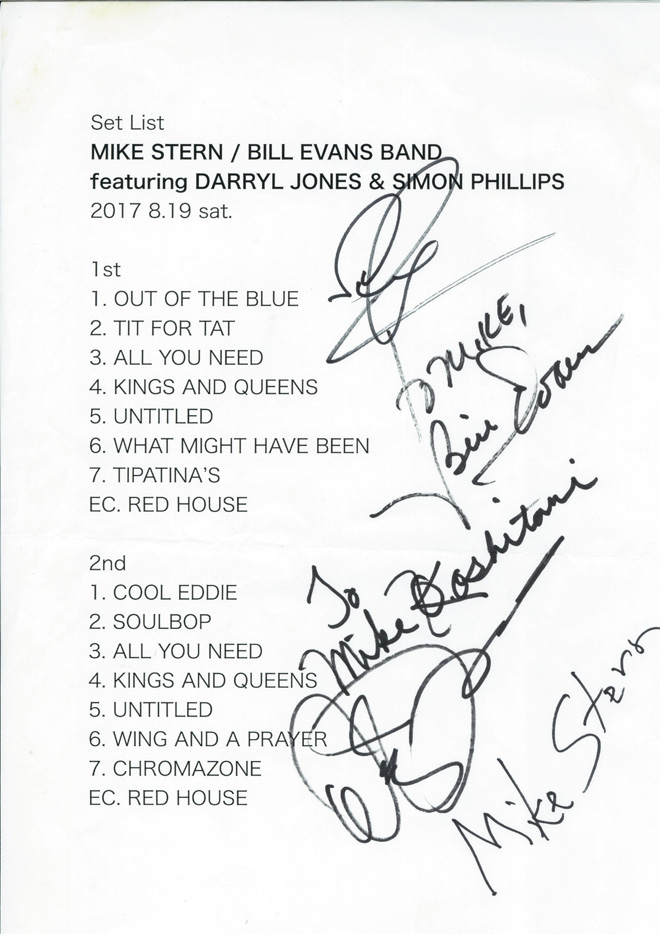 Set List
MIKE STERN / BILL EVANS BAND
featuring DARRYL JONES & SIMON PHILLIPS
2017 8.19 sat.
1st
1. OUT OF THE BLUE
2. TIT FOR TAT
3. ALL YOU NEED
4. KINGS AND QUEENS
5. UNTITLED
6. WHAT MIGHT HAVE BEEN
7. TIPATINA'S
EC. RED HOUSE
2nd
1. COOL EDDIE
2. SOULBOP
3. ALL YOU NEED
4. KINGS AND QUEENS
5. UNTITLED
6. WING AND A PRAYER
7. CHROMAZONE
EC. RED HOUSE
To MIKE,
Bill Evans
To
Mike Koshitani
Mike Stern